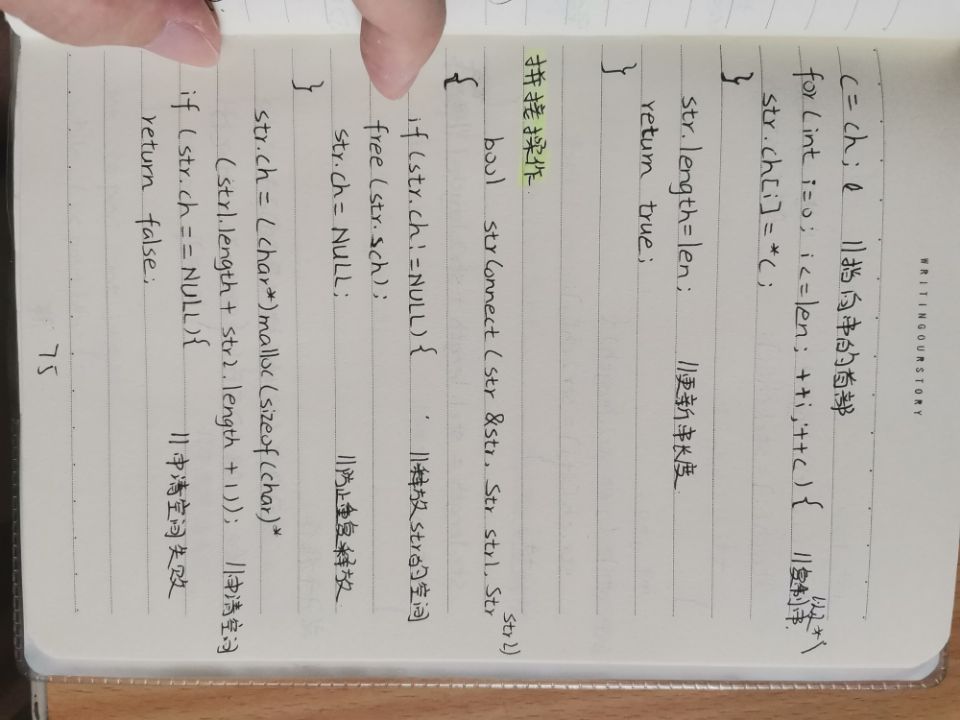 WRITINGOURSTORY
c=ch; //指向串的首部
for(int i=0; i<=len; ++i,++c){ //复制串
str.ch[i]=*c;
}
str.length=len; //更新串长度
return true;
}
拼接操作
bool strConnect(str &str, Str str1, Str str2)
{
if(str.ch!=NULL){ //释放str的空间
free(str.sch);
str.ch=NULL; //防止重复释放
}
str.ch=(char*)malloc(sizeof(char)*
(str1.length+str2.length+1)); //申请空间
if(str.ch==NULL){ //申请空间失败
return false;
75